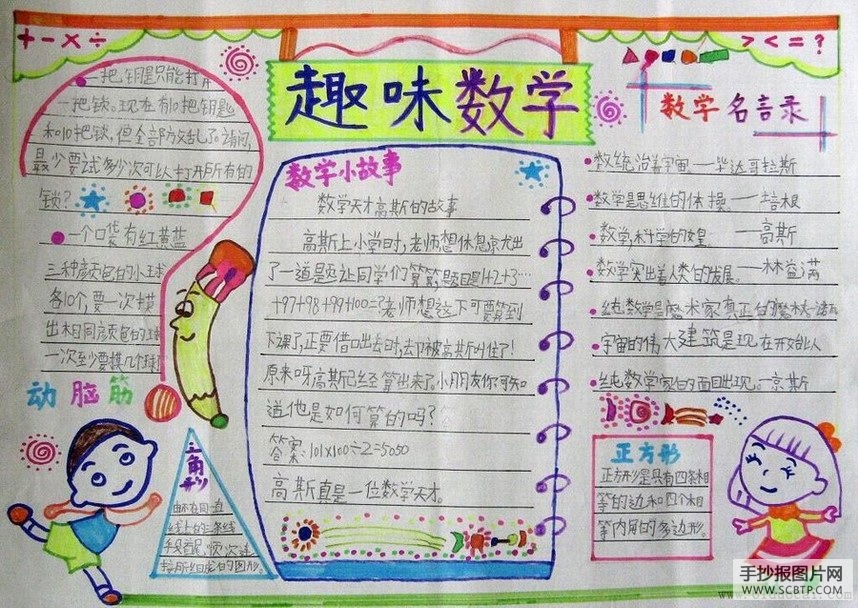 + - × ÷
> < = ?
趣味数学
一把钥匙只能打开
一把锁。现在有10把钥匙
和10把锁,但全部方法乱了。请问,
最少要试多少次可以打开所有的
锁?
一个口袋有红黄蓝
三种颜色的小球
各10个,要一次摸
出相同颜色的
一次至少要摸几个球?
动脑筋
三角形
由不在同一直
线上的三条线
段首尾 顺次连
接所组成的图形。
数学小故事
数学天才高斯的故事
高斯上小学时,老师想休息京尤出
了一道题让同学们算算,题目是1+2+3…
+97+98+99+100=?老师想这下可要算到
下课了,正要借口出去时,却被高斯叫住了!
原来呀高斯已经算出来了。小朋友你可知
道他是如何算的吗?
答案:101×100÷2=5050
高斯真是一位数学天才。
数学名言录
数统治着宇宙。——毕达哥拉斯
数学是思维的体操。——培根
数学,科学的女皇——高斯
数学突出着人类的发展。——林益满
纯数学是魔术家真正的魔杖
宇宙的伟大建筑是现在开始以
纯数学家的面目出现。—京斯
正方形
正方形是具有四条相
等的边和四个相
等内角的多边形。
手抄报图片网
WWW.SCBTP.COM